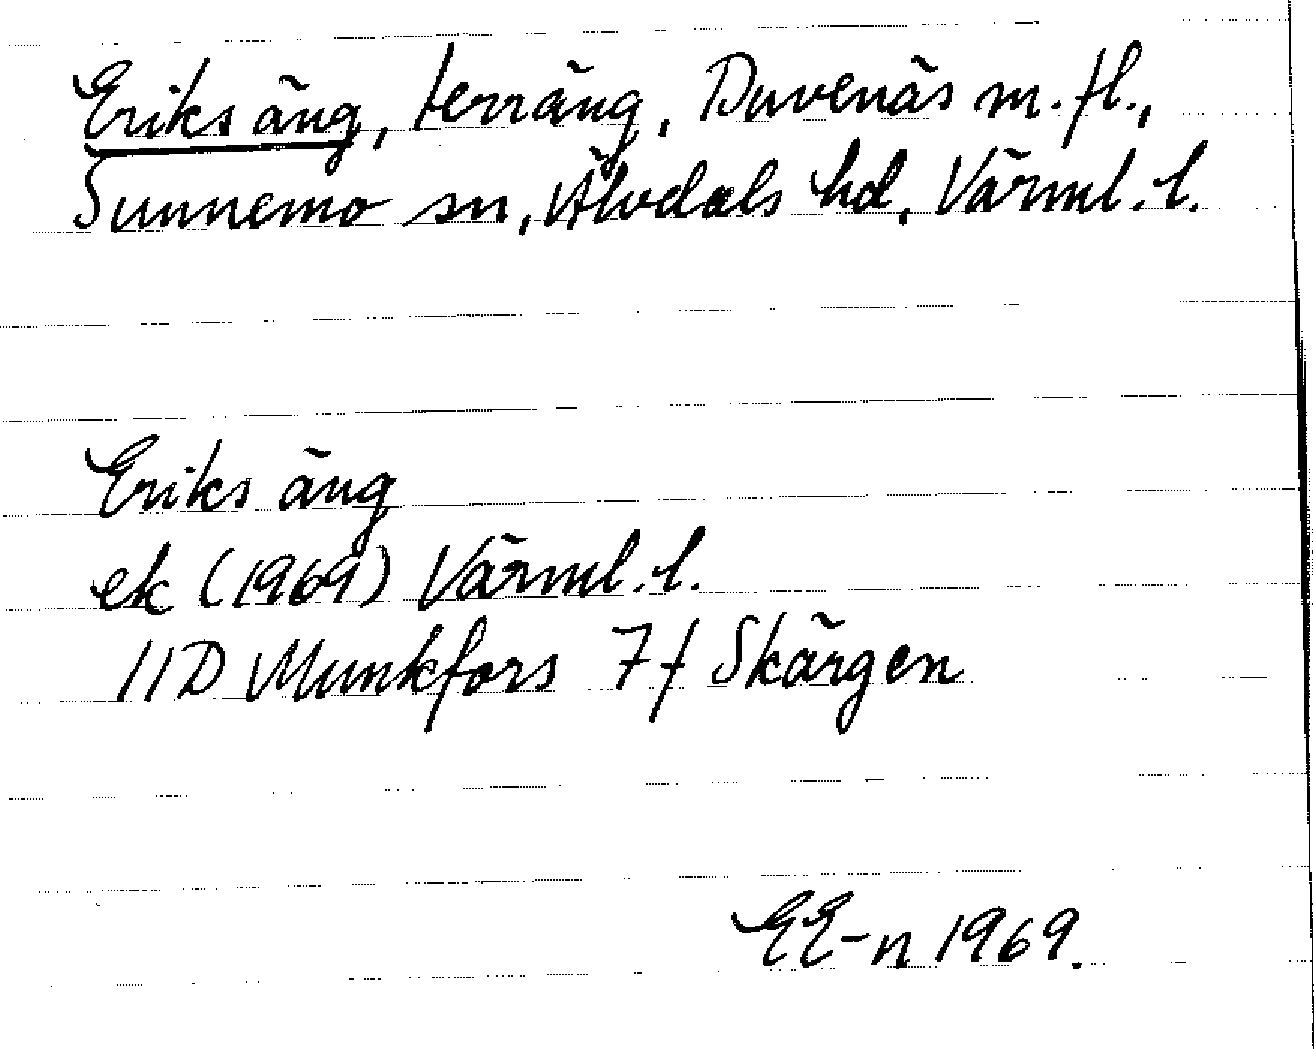 Eriks äng, terräng, Duvenäs m.fl.,
Sunnemo sn, Älvdals hd, Värml.l.
Eriks äng
ek (1969) Värml.l.
11D Munkfors 7f Skärgen
EE-n 1969.